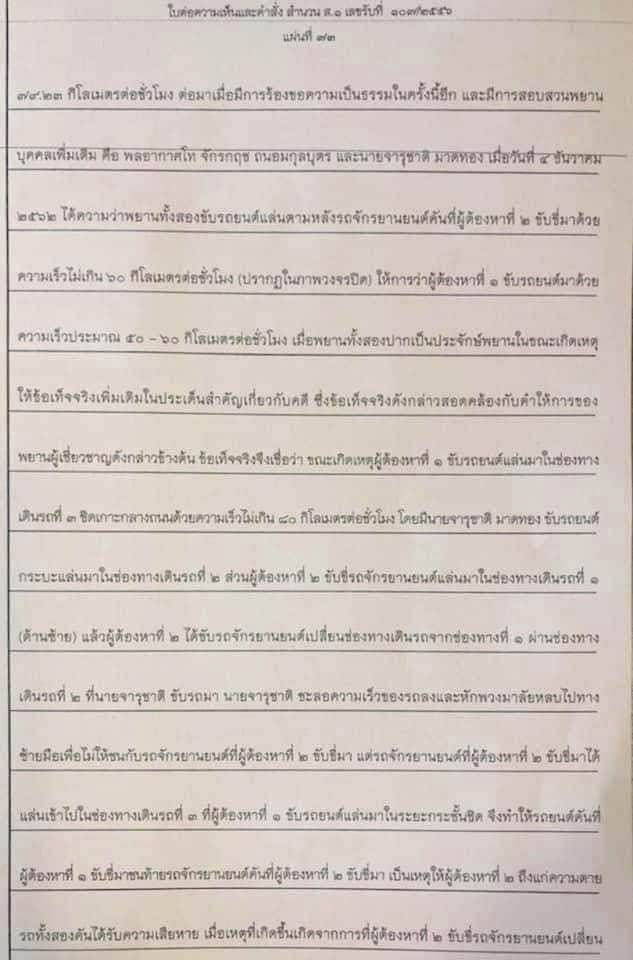 ใบต่อความเห็นและคำสั่ง สำนวน ส.๑ เลขรับที่ ๑๐๙/๒๕๕๖
แผ่นที่ ๗๓
๗๙.๒๓ กิโลเมตรต่อชั่วโมง ต่อมาเมื่อมีการร้องขอความเป็นธรรมในครั้งนี้อีก และมีการสอบสวนพยาน
บุคคลเพิ่มเติม คือ พลอากาศโท จักรกฤช ถนอมกุลบุตร และนายจารุชาติ มาดทอง เมื่อวันที่ ๔ ธันวาคม
๒๕๖๒ ได้ความว่าพยานทั้งสองขับรถยนต์แล่นตามหลังรถจักรยานยนต์คันที่ผู้ต้องหาที่ ๒ ขับขี่มาด้วย
ความเร็วไม่เกิน ๖๐ กิโลเมตรต่อชั่วโมง (ปรากฏในภาพวงจรปิด) ให้การว่าผู้ต้องหาที่ ๑ ขับรถยนต์มาด้วย
ความเร็วประมาณ ๕๐ – ๖๐ กิโลเมตรต่อชั่วโมง เมื่อพยานทั้งสองปากเป็นประจักษ์พยานในขณะเกิดเหตุ
ให้ข้อเท็จจริงเพิ่มเติมในประเด็นสำคัญเกี่ยวกับคดี ซึ่งข้อเท็จจริงดังกล่าวสอดคล้องกับคำให้การของ
พยานผู้เชี่ยวชาญดังกล่าวข้างต้น ข้อเท็จจริงจึงเชื่อว่า ขณะเกิดเหตุผู้ต้องหาที่ ๑ ขับรถยนต์แล่นมาในช่องทาง
เดินรถที่ ๓ ชิดเกาะกลางถนนด้วยความเร็วไม่เกิน ๘๐ กิโลเมตรต่อชั่วโมง โดยมีนายจารุชาติ มาดทอง ขับรถยนต์
กระบะแล่นมาในช่องทางเดินรถที่ ๒ ส่วนผู้ต้องหาที่ ๒ ขับขี่รถจักรยานยนต์แล่นมาในช่องทางเดินรถที่ ๑
(ด้านซ้าย) แล้วผู้ต้องหาที่ ๒ ได้ขับรถจักรยานยนต์เปลี่ยนช่องทางเดินรถจากช่องทางที่ ๑ ผ่านช่องทาง
เดินรถที่ ๒ ที่นายจารุชาติ ขับรถมา นายจารุชาติ ชะลอความเร็วของรถลงและหักพวงมาลัยหลบไปทาง
ซ้ายมือเพื่อไม่ให้ชนกับรถจักรยานยนต์ที่ผู้ต้องหาที่ ๒ ขับขี่มา แต่รถจักรยานยนต์ที่ผู้ต้องหาที่ ๒ ขับขี่มาได้
แล่นเข้าไปในช่องทางเดินรถที่ ๓ ที่ผู้ต้องหาที่ ๑ ขับรถยนต์แล่นมาในระยะกระชั้นชิด จึงทำให้รถยนต์คันที่
ผู้ต้องหาที่ ๑ ขับขี่มาชนท้ายรถจักรยานยนต์คันที่ผู้ต้องหาที่ ๒ ขับขี่มา เป็นเหตุให้ผู้ต้องหาที่ ๒ ถึงแก่ความตาย
รถทั้งสองคันได้รับความเสียหาย เมื่อเหตุที่เกิดขึ้นเกิดจากการที่ผู้ต้องหาที่ ๒ ขับขี่รถจักรยานยนต์เปลี่ยน